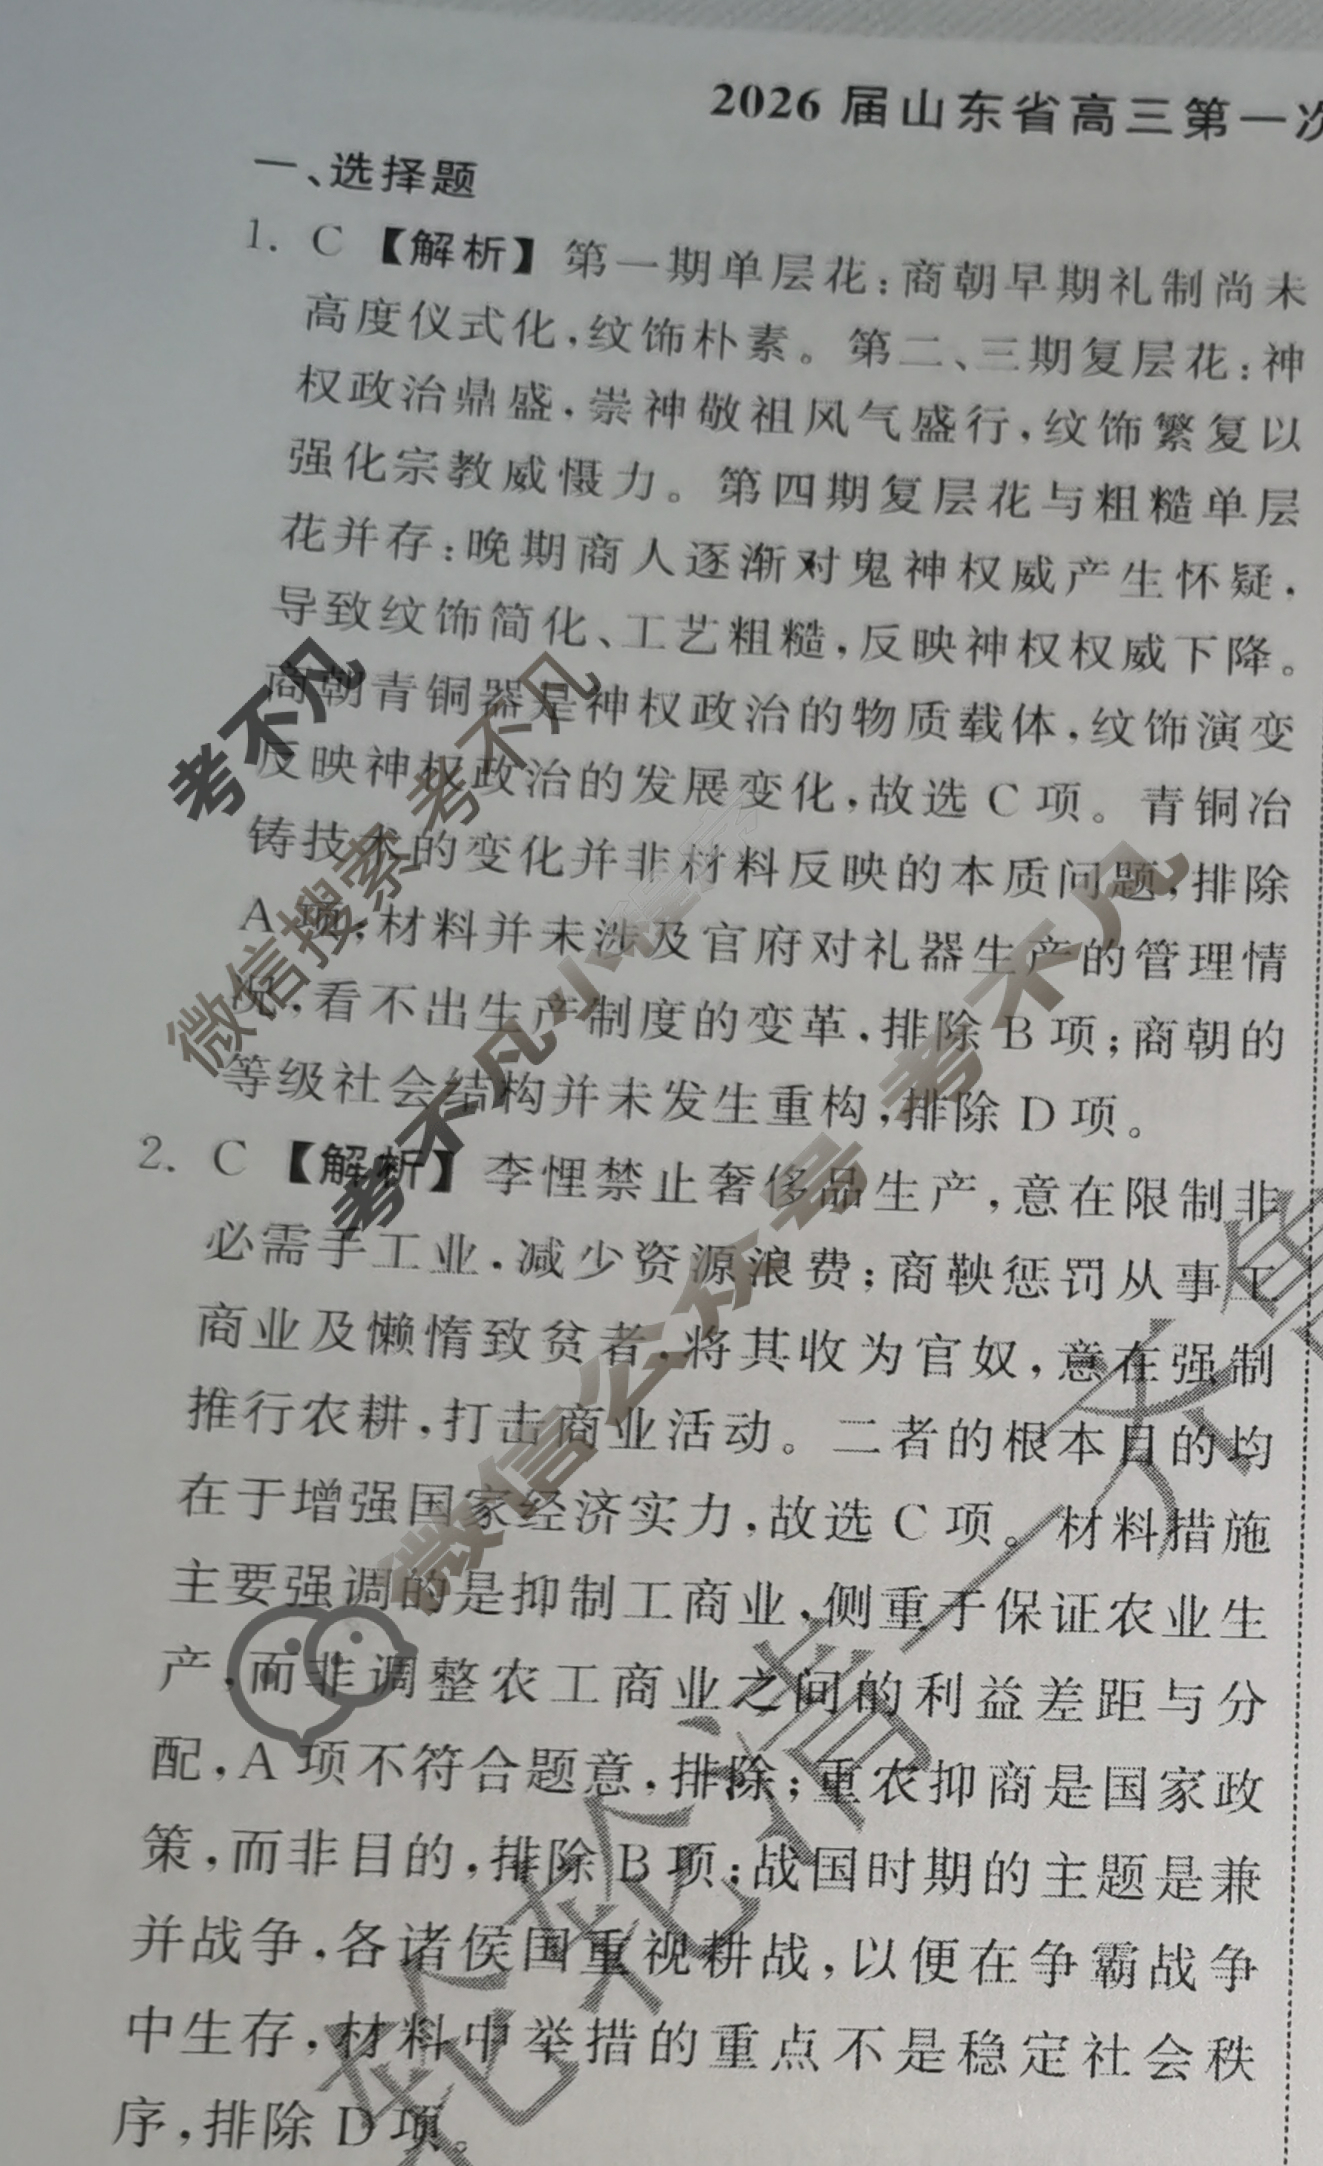 2026 届山东省高三第一次
一、选择题
1. C 【解析】第一期单层花:商朝早期礼制尚未
高度仪式化,纹饰朴素。第二、三期复层花:神
权政治鼎盛,崇神敬祖风气盛行,纹饰繁复以
强化宗教威慑力。第四期复层花与粗糙单层
花并存:晚期商人逐渐对鬼神权威产生怀疑,
导致纹饰简化、工艺粗糙,反映神权权威下降。
商朝青铜器是神权政治的物质载体,纹饰演变
反映神权政治的发展变化,故选 C 项。青铜冶
铸技术的变化并非材料反映的本质问题,排除
A 项;材料并未涉及官府对礼器生产的管理情
况,看不出生产制度的变革,排除 B 项;商朝的
等级社会结构并未发生重构,排除 D 项。
2. C 【解析】李悝禁止奢侈品生产,意在限制非
必需手工业,减少资源浪费;商鞅惩罚从事工
商业及懒惰致贫者,将其收为官奴,意在强制
推行农耕,打击商业活动。二者的根本目的均
在于增强国家经济实力,故选 C 项。材料措施
主要强调的是抑制工商业,侧重于保证农业生
产,而非调整农工商业之间的利益差距与分
配,A 项不符合题意,排除;重农抑商是国家政
策,而非目的,排除 B 项;战国时期的主题是兼
并战争,各诸侯国重视耕战,以便在争霸战争
中生存,材料中举措的重点不是稳定社会秩
序,排除 D 项。
考不凡
微信搜索 考不凡
考不凡小程序
微信公众号 考不凡